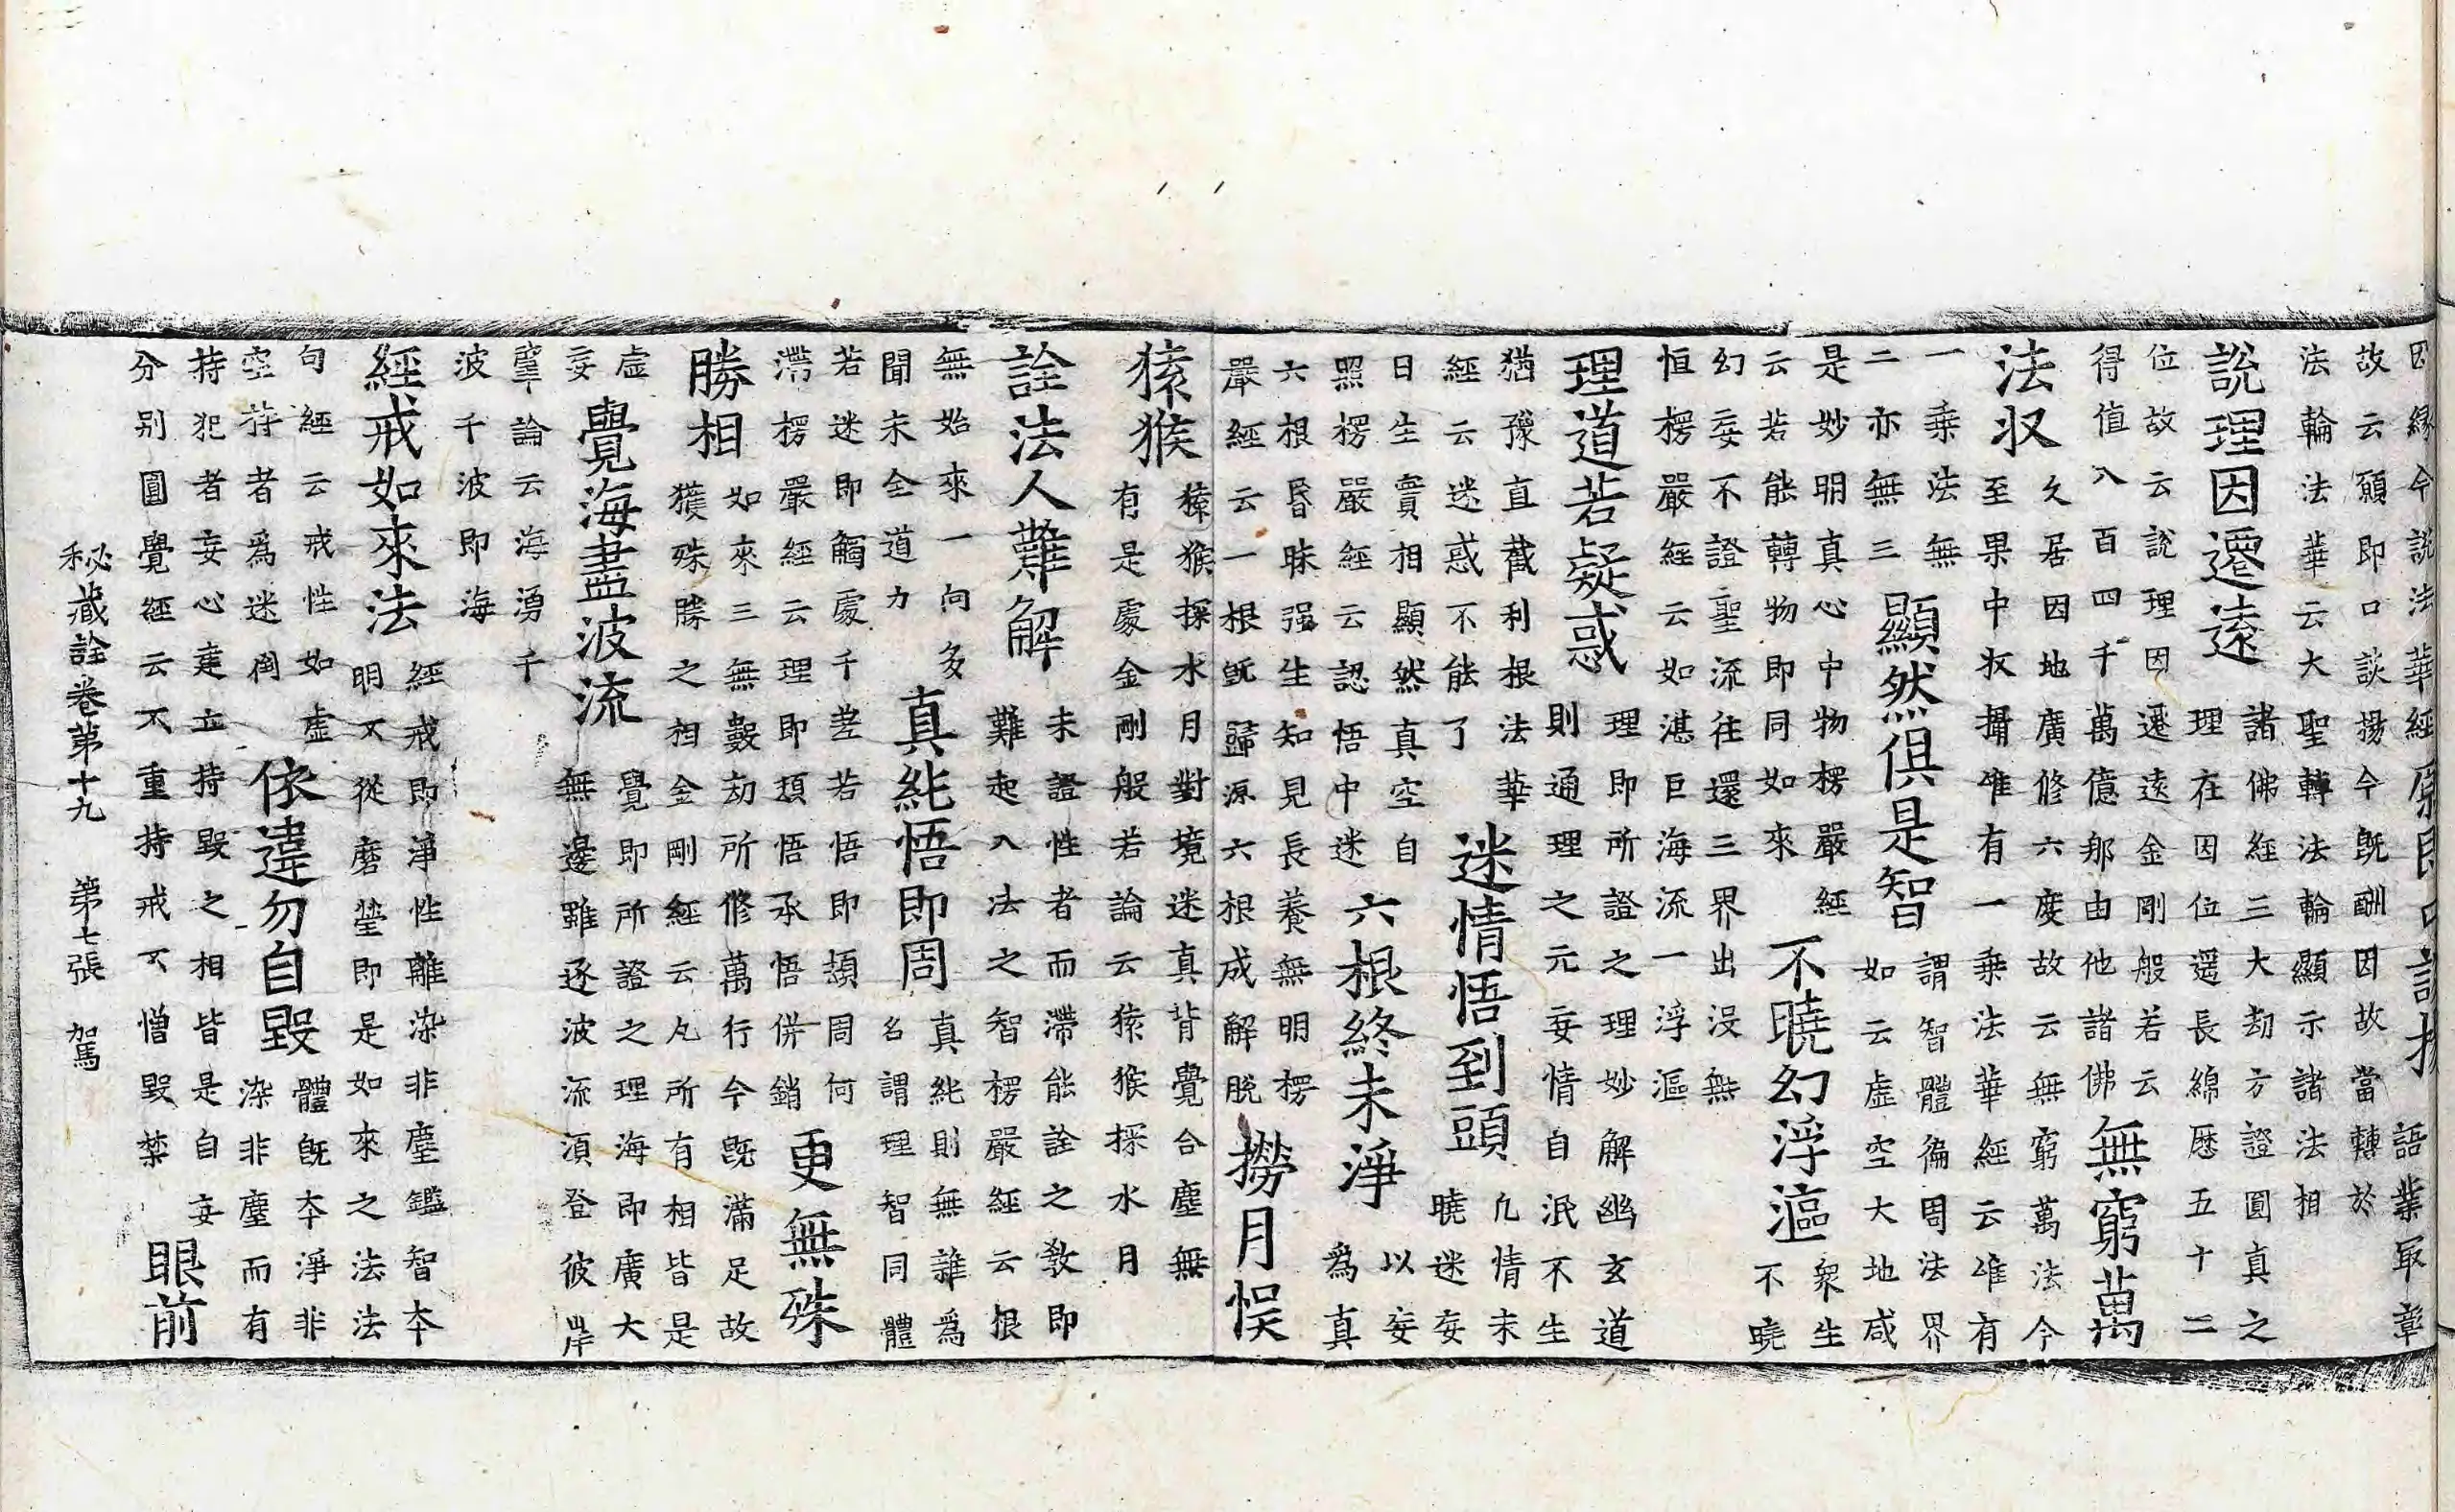 因緣今說法華經
語業冣章
故云願即口談揚今旣酬因故當轉於
法輪法華云大聖轉法輪顯示諸法相
說理因遷遠
諸佛經三大劫方證圓真之
理在因位遥長綿歷五十二
位故云說理因遷遠金剛般若云
得值八百四千萬億那由他諸佛
無窮萬
法収
久居因地廣修六度故云無窮萬法今
至果中収攝唯有一乗法華經云唯有
一乗法無
二亦無三
顯然俱是智
謂智體徧周法界
如云虛空大地咸
是妙明真心中物楞嚴經
云若能轉物即同如來
不曉幻浮漚
衆生
不曉
幻妄不證聖流往還三界出沒無
恒楞嚴經云如湛巨海流一浮漚
理道若疑惑
理即所證之理妙解幽玄道
則通理之元妄情自泯不生
猶豫直截利根法華
經云迷惑不能了
迷情悟到頭
凢情未
曉迷妄
日生實相顯然真空自
照楞嚴經云認悟中迷
六根終未淨
以妄
為真
六根昬昧强生知見長養無明楞
嚴經云一根旣歸源六根成解脫
撈月悮
猿猴
猿猴探水月對境迷真背覺合塵無
有是處金剛般若論云猿猴探水月
詮法人難解
未證性者而滯能詮之教即
難起入法之智楞嚴經云根
無始來一向多
聞未全道力
真純悟即周
真純則無雜爲
名謂理智同體
若迷即觸處千差若悟即頓周何
滯楞嚴經云理即頓悟承悟併銷
更無殊
勝相
如來三無數劫所修萬行今旣滿足故
獲殊勝之相金剛經云凡所有相皆是
虛
妄
覺海盡波流
覺即所證之理海即廣大
無邊雖逐波流須登彼岸
肇論云海湧千
波千波即海
經戒如來法
經戒即淨性離染非塵鑑智本
明不從磨瑩即是如來之法法
句經云戒性如虛
空持者爲迷倒
依違勿自毀
體旣本淨非
染非塵而有
持犯者妄心建立持毀之相皆是自妄
分别圓覺經云不重持戒不憎毀禁
眼前
秘藏詮卷第十九　第七張　駕